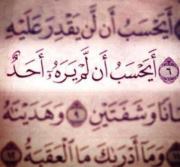 أَيَحْسَبُ أَن لَّن يَقْدِرَ عَلَيْهِ
٦ أَيَحْسَبُ أَن لَّمْ يَرَهُۥٓ أَحَدٌ
انًا وَشَفَتَيْنِ ٩ وَهَدَيْنَٰهُ
وَمَآ أَدْرَىٰكَ مَا ٱلْعَقَبَةُ